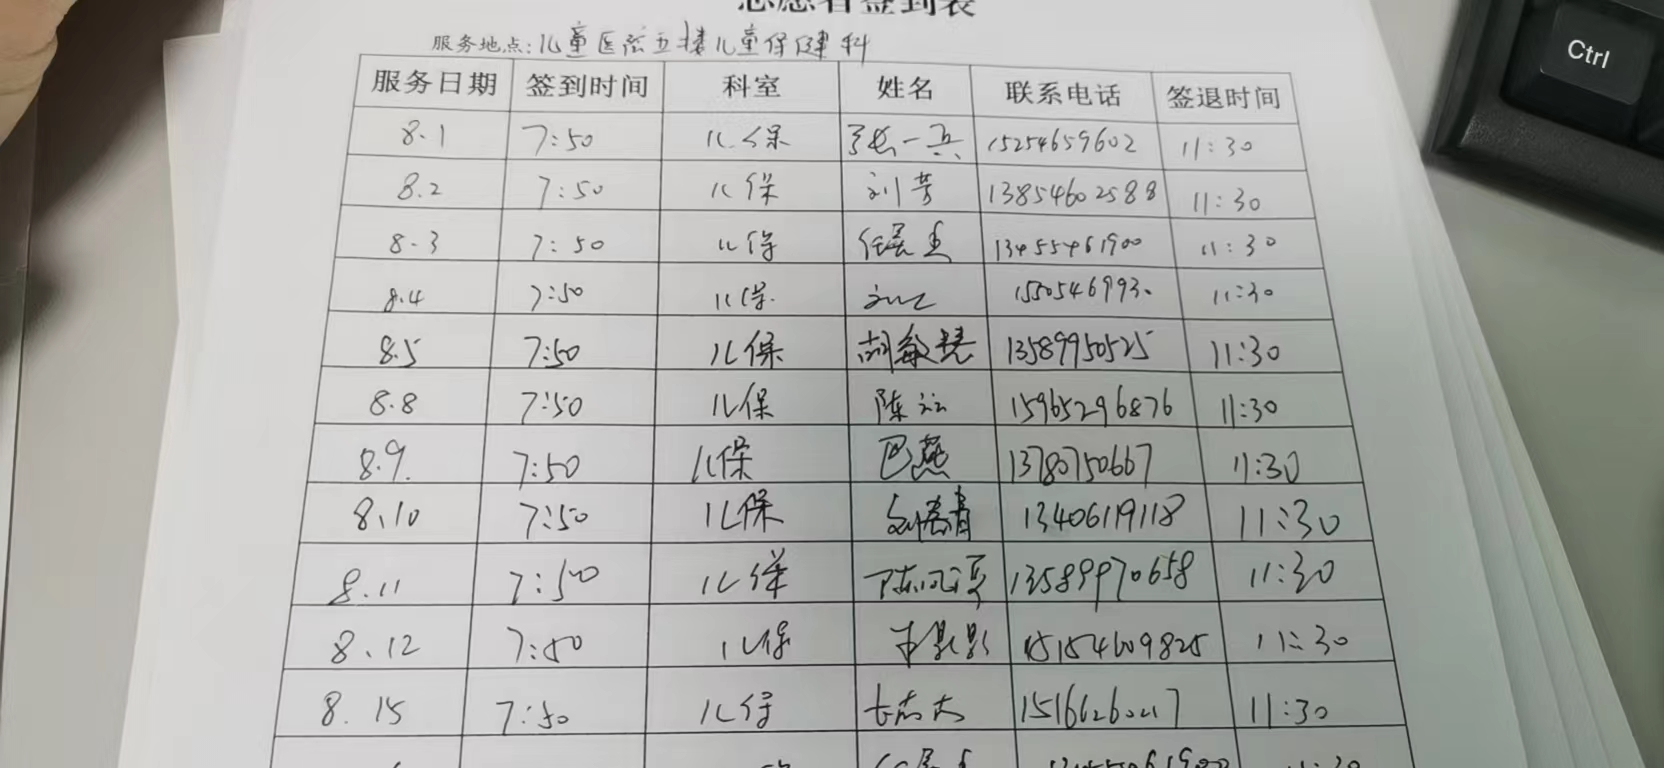 志愿者签到表
服务地点:儿童医院五楼儿童保健科
服务日期 签到时间 科室 姓名 联系电话 签退时间
8.1 7:50 儿保 张一兵 15254659602 11:30
8.2 7:50 儿保 刘芳 13854602588 11:30
8.3 7:50 儿保 13455461900 11:30
8.4 7:50 儿保 11:30
8.5 7:50 儿保 胡敏慧 13589950525 11:30
8.8 7:50 儿保 陈 15965296876 11:30
8.9. 7:50 儿保 巴燕 13780750667 11:30
8.10 7:50 儿保 13406119118 11:30
8.11 7:50 儿保 13589970658 11:30
8.12 7:50 儿保 15154609825 11:30
8.15 7:50 儿保 11:30
Ctrl